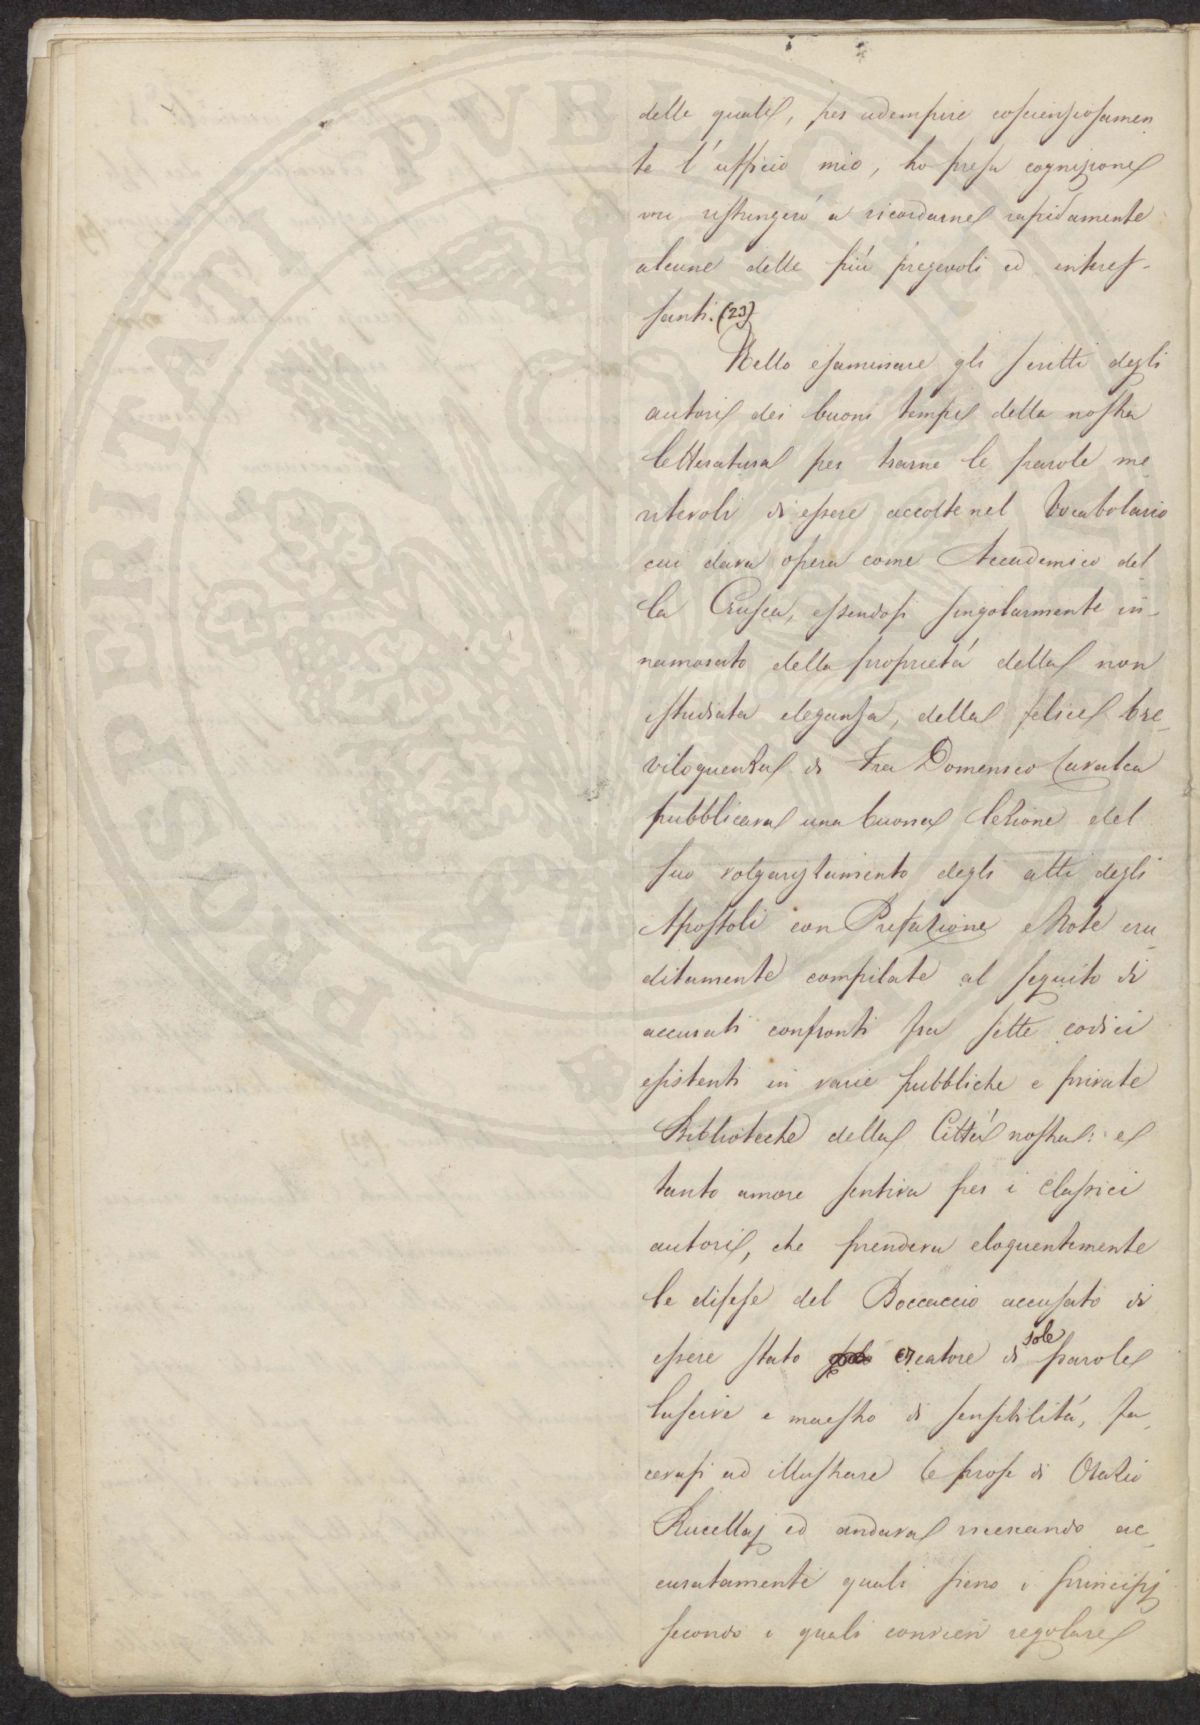 delle quali, per adempire coscienziosamen
te l'ufficio mio, ho presa cognizione
mi ristringerò a ricordarne rapidamente
alcune delle più pregevoli ed interes-
santi. (23)
Nello esaminare gli scritti degli
autori dei buoni tempi della nostra
letteratura per trarne le parole me
ritevoli di essere accolte nel Vocabolario
cui dava opera come Accademico del
la Crusca, essendosi singolarmente in-
namorato della proprietà della non
istudiata eleganza, della felice bre_
viloquenza di Fra Domenico Cavalca
pubblicava una buona lezione del
suo volgarizzamento degli atti degli
Apostoli con Prefazione e Note eru_
ditamente compilate al seguito di
accurati confronti fra sette codici
esistenti in varie pubbliche e private
Biblioteche della Città nostra: e
tanto amore sentiva per i classici
autori, che prendeva eloquentemente
le difese del Boccaccio accusato di
essere stato creatore di sole parole
lascive e maestro di sensibilità, fa_
cevasi ad illustrare le prose di Orazio
Rucellaj ed andava ricercando ac_
curatamente quali sieno i principj
secondo i quali convien regolare